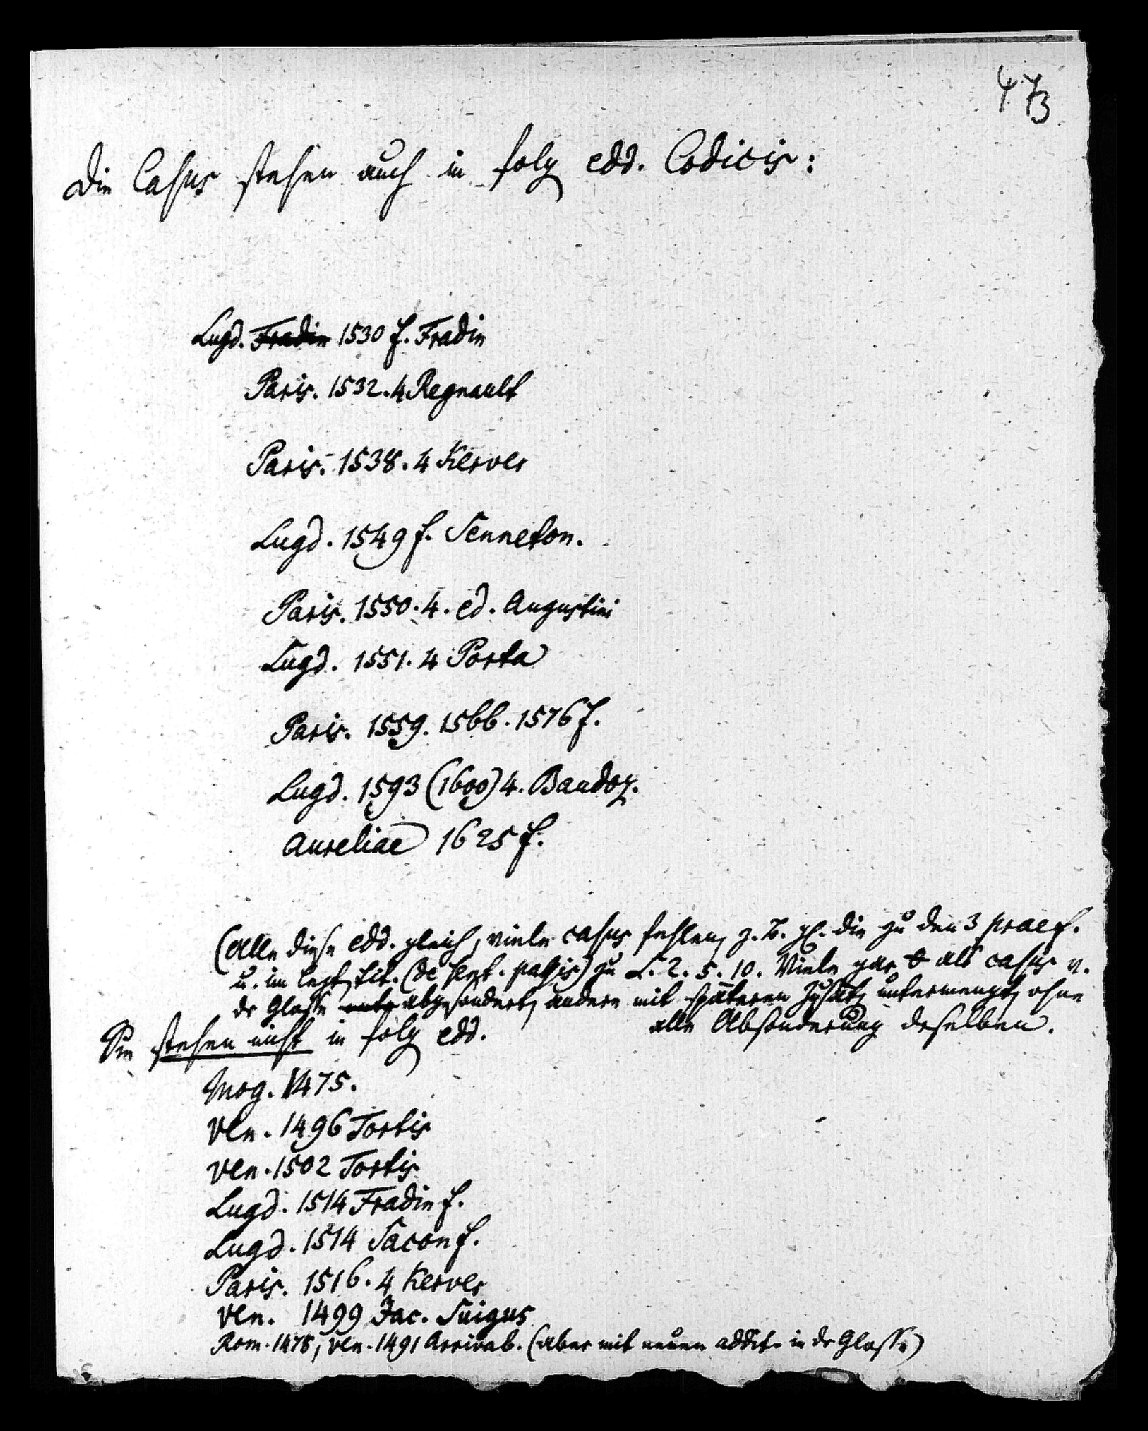 473
Die Casus stehen auch in folg edd. Codicis:
Lugd. Fradin 1530 f. Fradin
Paris. 1532. 4 Regnault
Paris. 1538. 4 Kerver
Lugd. 1549 f. Senneton.
Paris. 1550. 4. ed. Augustini
Lugd. 1551. 4 Porta
Paris. 1559. 1566. 1576 f.
Lugd. 1593 (1600) 4. Baudoz.
Aureliae 1625 f.
(Alle diese edd. gleich, viele casus fehlen, z. B. die zu den 3 praef.
u. im tit. (de sent. passis) zu L. 2. 5. 10. Viele gar als casus v.
der Glosse abgesondert, andere mit späteren Zusätz untermengt, ohne
alle Absonderung derselben.
Sie stehen nicht in folg edd.
Mog. 1475.
Ven. 1496 Tortis
Ven. 1502 Tortis
Lugd. 1514 Fradin f.
Lugd. 1514 Sacon f.
Paris. 1516. 4 Kerver
Ven. 1499 Jac. Suigus
Rom. 1476, Ven. 1491 Arrivab. (aber mit neuen addit. in der Glosse)